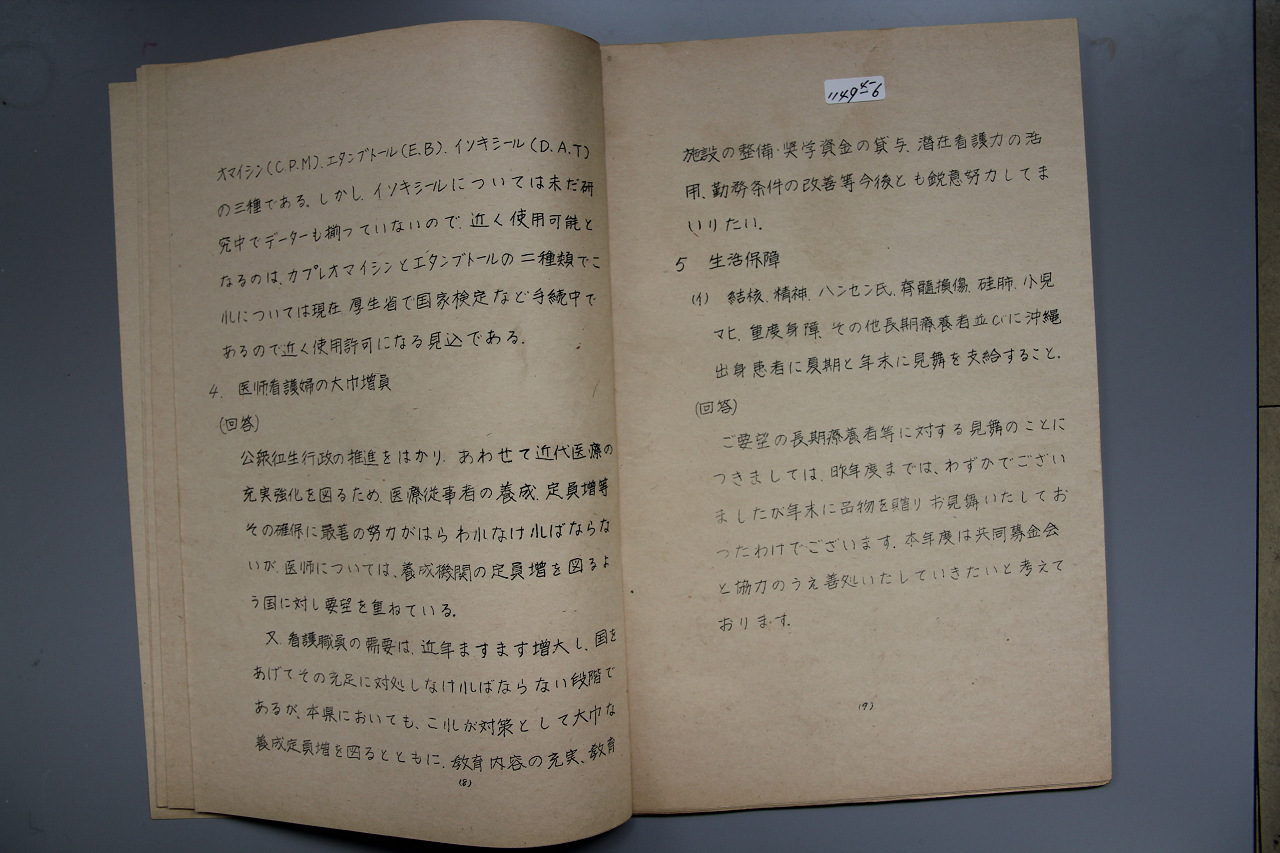 オマイシン(C.P.M)、エタンブトール(E.B)、イソキシール(D.A.T)
の三種である、しかし、イソキシールについては未だ研
究中でデーターも揃っていないので、近く使用可能と
なるのは、カプレオマイシンとエタンブトールの二種類でこ
れについては現在、厚生省で国家検定など手続中で
あるので近く使用許可になる見込である。
4. 医師看護婦の大巾増員
(回答)
公衆衛生行政の推進をはかり、あわせて近代医療の
充実強化を図るため、医療従事者の養成、定員増等
その確保に最善の努力がはらわれなければならな
いが、医師については、養成機関の定員増を図るよ
う国に対し要望を重ねている。
又、看護職員の需要は、近年ますます増大し、国を
あげてその充足に対処しなければならない段階で
あるが、本県においても、これが対策として大巾な
養成定員増を図るとともに、教育内容の充実、教育
(8)
1149 4-6
施設の整備・奨学資金の貸与、潜在看護力の活
用、勤務条件の改善等今後とも鋭意努力してま
いりたい。
5 生活保障
(イ) 結核、精神、ハンセン氏、脊髄損傷、硅肺、小児
マヒ、重度身障、その他長期療養者並びに沖縄
出身患者に夏期と年末に見舞を支給すること。
(回答)
ご要望の長期療養者等に対する見舞のことに
つきましては、昨年度までは、わずかでござい
ましたが年末に品物を贈りお見舞いたしてお
つたわけでございます。本年度は共同募金会
と協力のうえ善処いたしていきたいと考えて
おります。
(9)